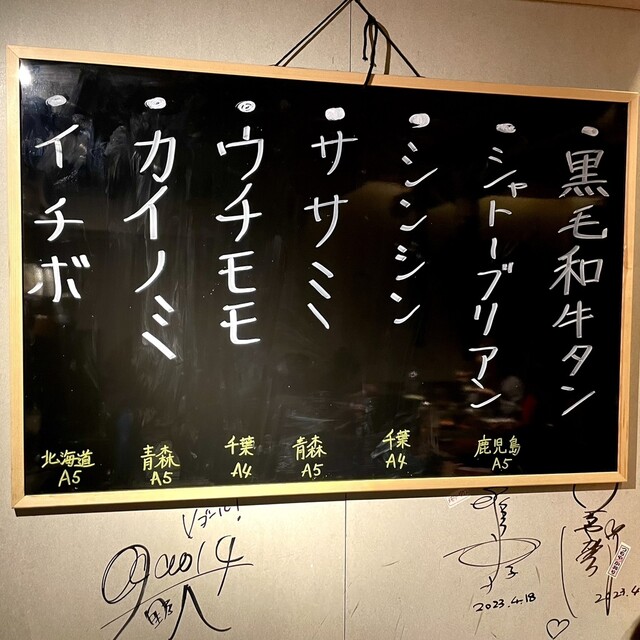 ・黒毛和牛タン
・シャトーブリアン
鹿児島
A5
・シンシン
千葉
A4
・ササミ
青森
A5
・ウチモモ
千葉
A4
・カイノミ
青森
A5
・イチボ
北海道
A5
Vゴール!
2023.4.18
2023.4